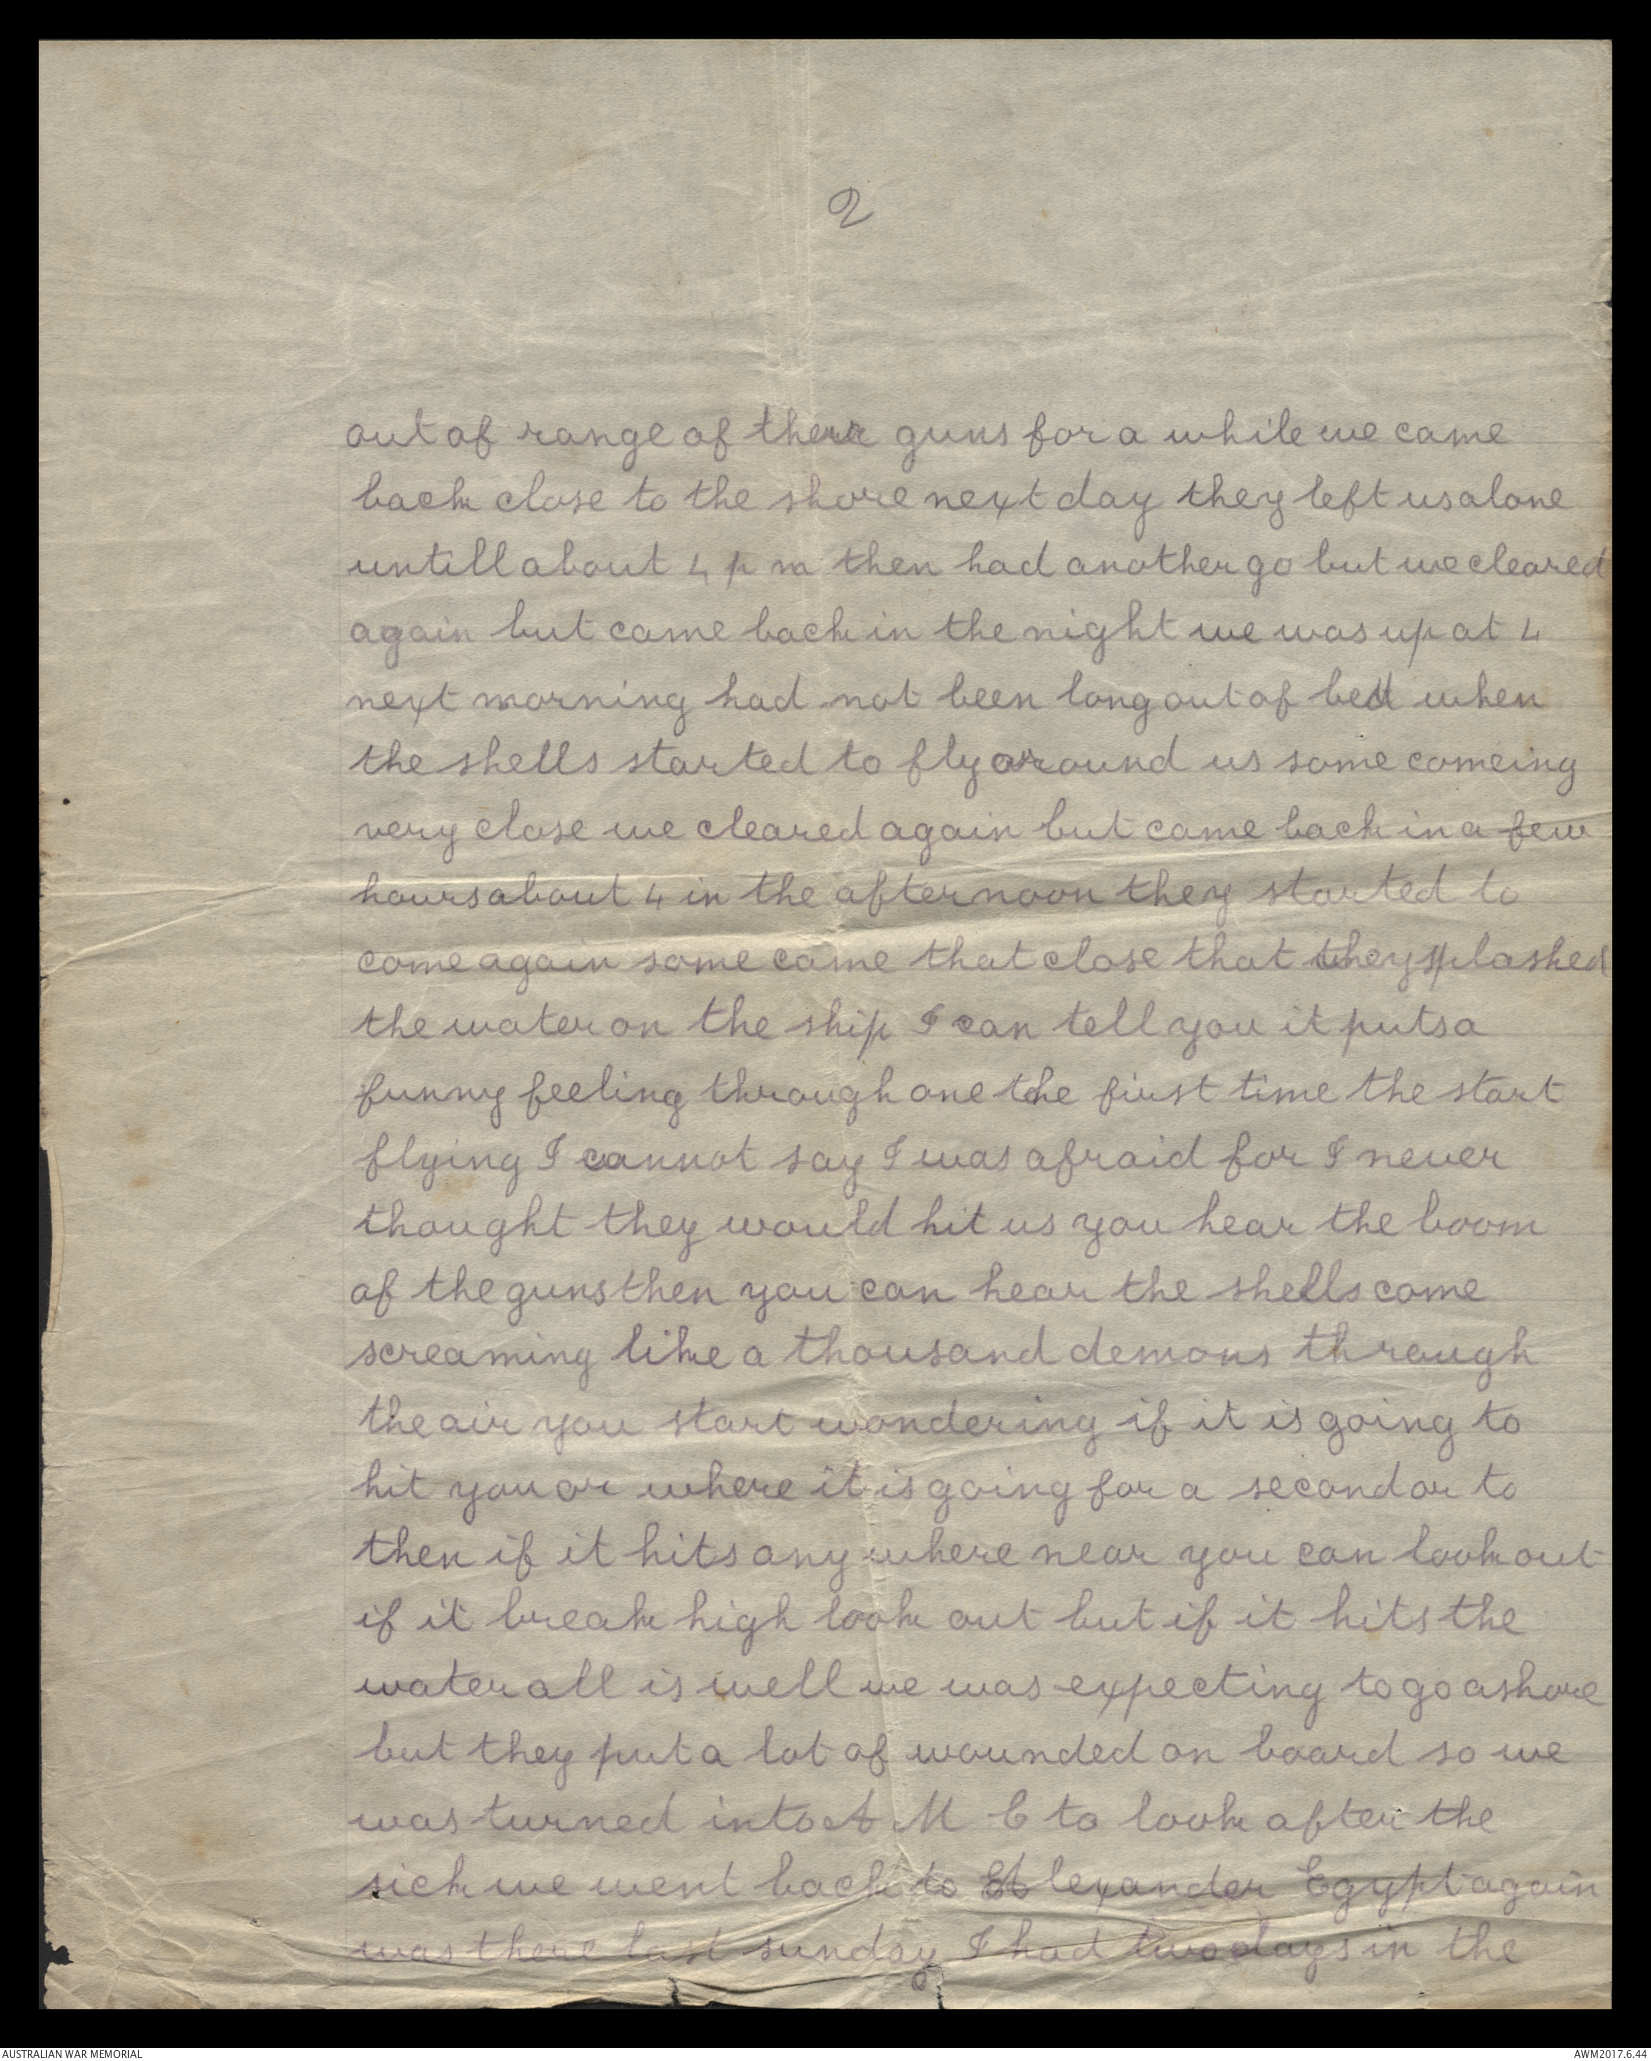 2
out of range of their guns for a while we came
back close to the shore next day they left us alone
untill about 4 p m then had another go but we cleared
again but came back in the night we was up at 4
next morning had not been long out of bed when
the shells started to fly around us some comeing
very close we cleared again but came back in a few
hours about 4 in the afternoon they started to
come again some came that close that they splashed
the water on the ship I can tell you it puts a
funny feeling through one the first time the start
flying I cannot say I was afraid for I never
thought they would hit us you hear the boom
of the guns then you can hear the shells come
screaming like a thousand demons through
the air you start wondering if it is going to
hit you or where it is going for a second or to
then if it hits any where near you can look out
if it break high look out but if it hits the
water all is well we was expecting to go ashore
but they put a lot of wounded on board so we
was turned into A M C to look after the
sick we went back to Alexander Egypt again
was there last sunday I had two days in the
AUSTRALIAN WAR MEMORIAL
AWM2017.6.44